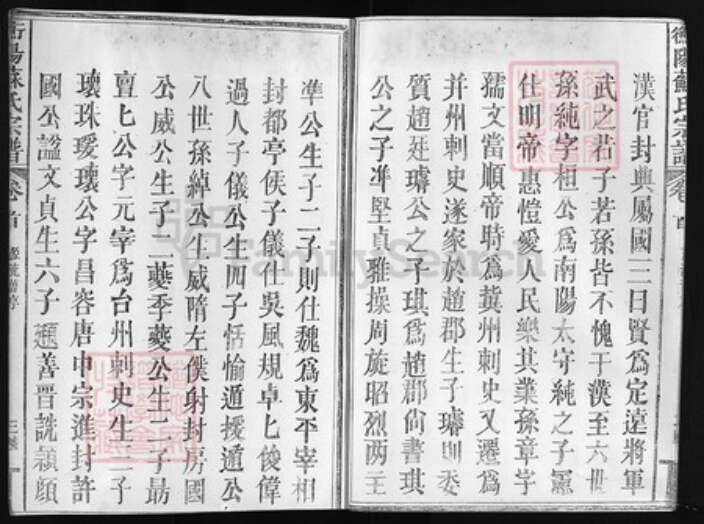 衡陽蘇氏宗譜 卷首
漢官封典屬國三曰賢爲定遠將軍
武之君子若孫皆不愧于漢至六世
孫純字桓公爲南陽太守純之子
仕明帝惠愷愛人民樂其業孫章字
孺文當順帝時爲冀州刺史又遷爲
并州刺史遂家於趙郡生子璿則委
質趙廷璿公之子琪爲趙郡尙書琪
公之子準堅貞雅操周旋昭烈两主
準公生子二子則仕魏爲東平宰相
封都亭侯子儀仕吳風規卓七俊偉
過人子儀公生四子恬愉遁援遁公
八世孫綽公生威隋左僕射封房國
公威公生子二夔季夔公生二子最
亶七公字元宰爲台州刺史生二子
瓌珠瑗瓌公字昌容唐中宗進封許
國公謚文貞生六子頲善晋詵頴頎
衡陽蘇氏宗譜 卷首
FamilySearch